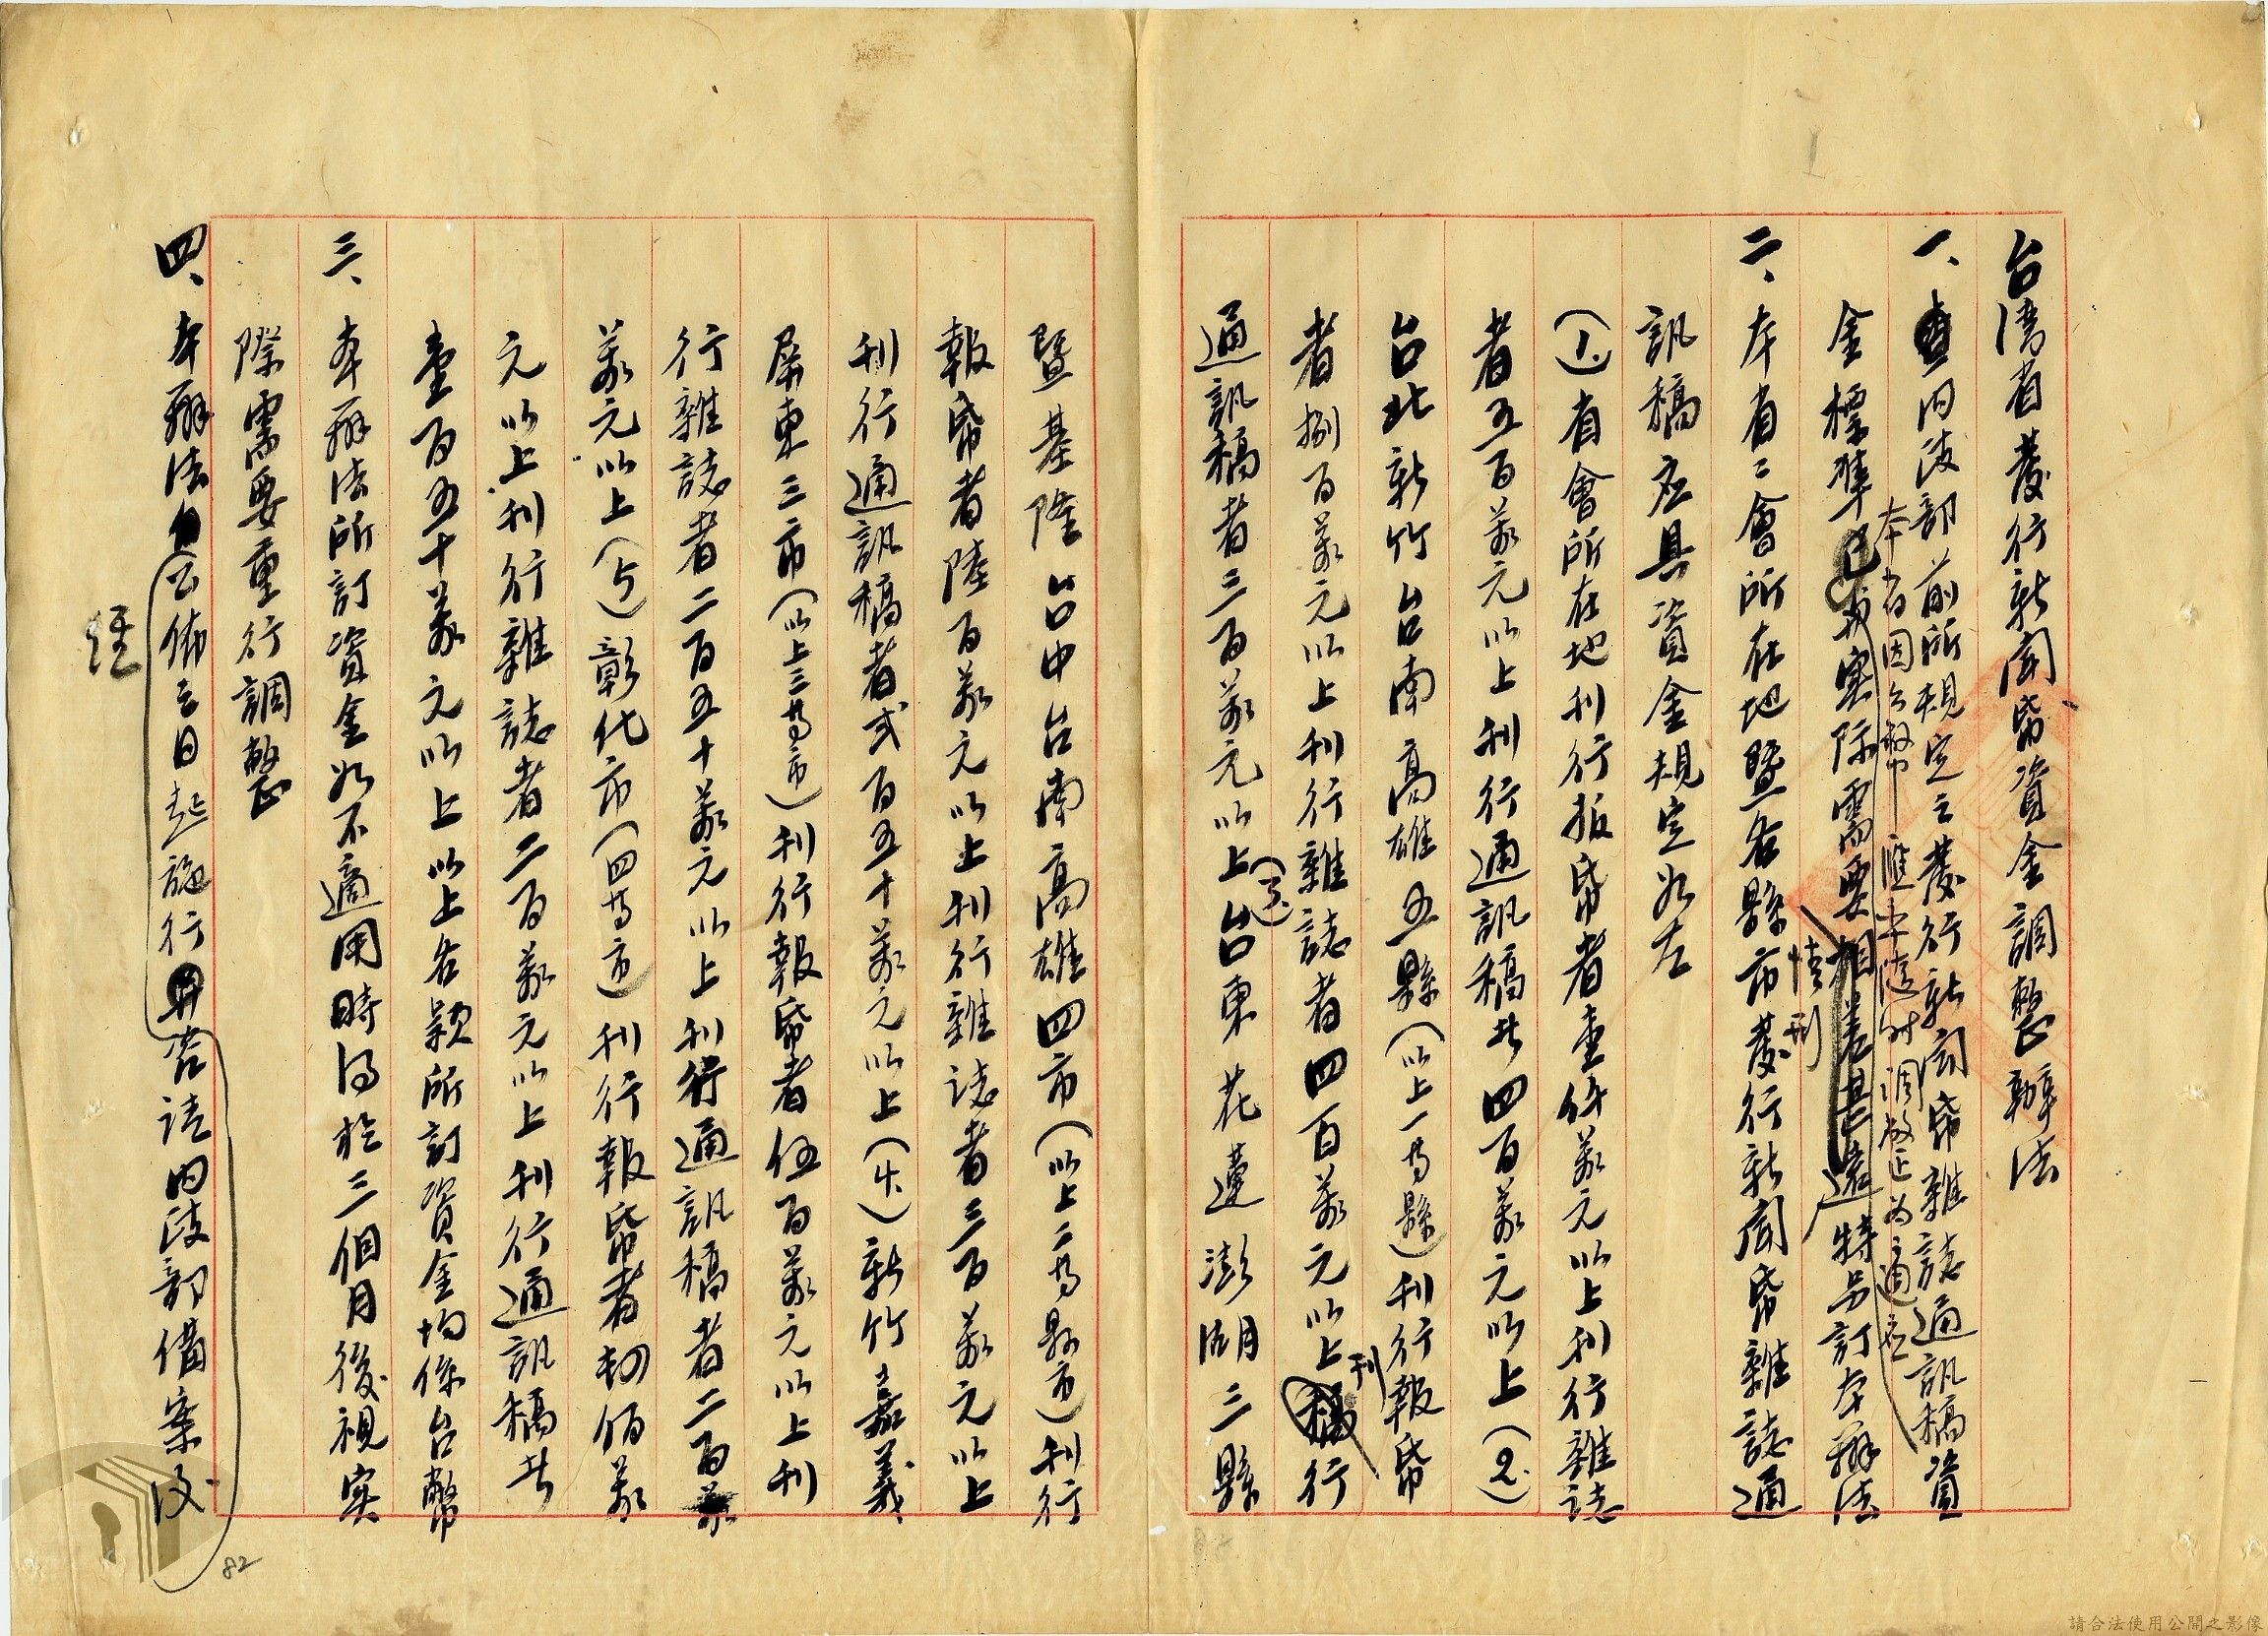 台湾省發行新聞帋資金調整辦法
一、查內政部前所規定之發行新聞帋雜誌通訊稿資
本省因公幣匯率隨時調整為適应
金標準已與实际需要相差甚遠特另訂本辦法
情形
二、本省ミ會所在地暨各縣市發行新聞帋雜誌通
訊稿应具資金規定如左
(1.)省會所在地刊行报帋者壹仟萬元以上刊行雜誌
者五百萬元以上刊行通訊稿者四百萬元以上(2.)
台北新竹台南高雄五縣(以上一等縣)刊行報帋
者捌百萬元以上刊行雜誌者四百萬元以上刊行
通訊稿者三百萬元以上(3.)台東花蓮澎湖三縣
暨基隆台中台南高雄四市(以上二等縣市)刊行
報帋者陸百萬元以上刊行雜誌者三百萬元以上
刊行通訊稿者弍百五十萬元以上(4.)新竹嘉義
屏東三市(以上三等市)刊行報帋者伍百萬元以上刊
行雜誌者二百五十萬元以上刊行通訊稿者二百萬
萬元以上(5)彰化市(四等市)刊行報帋者四佰萬
元以上刊行雜誌者二百萬元以上刊行通訊稿者
壹百五十萬元以上以上各款所訂資金均係台幣
三、本辦法所訂資金如不適用時得於三個月後視实
際需要重行調整
四、本辦法自公佈之日起施行並咨請內政部備案後
經
82
請合法使用公開之影像